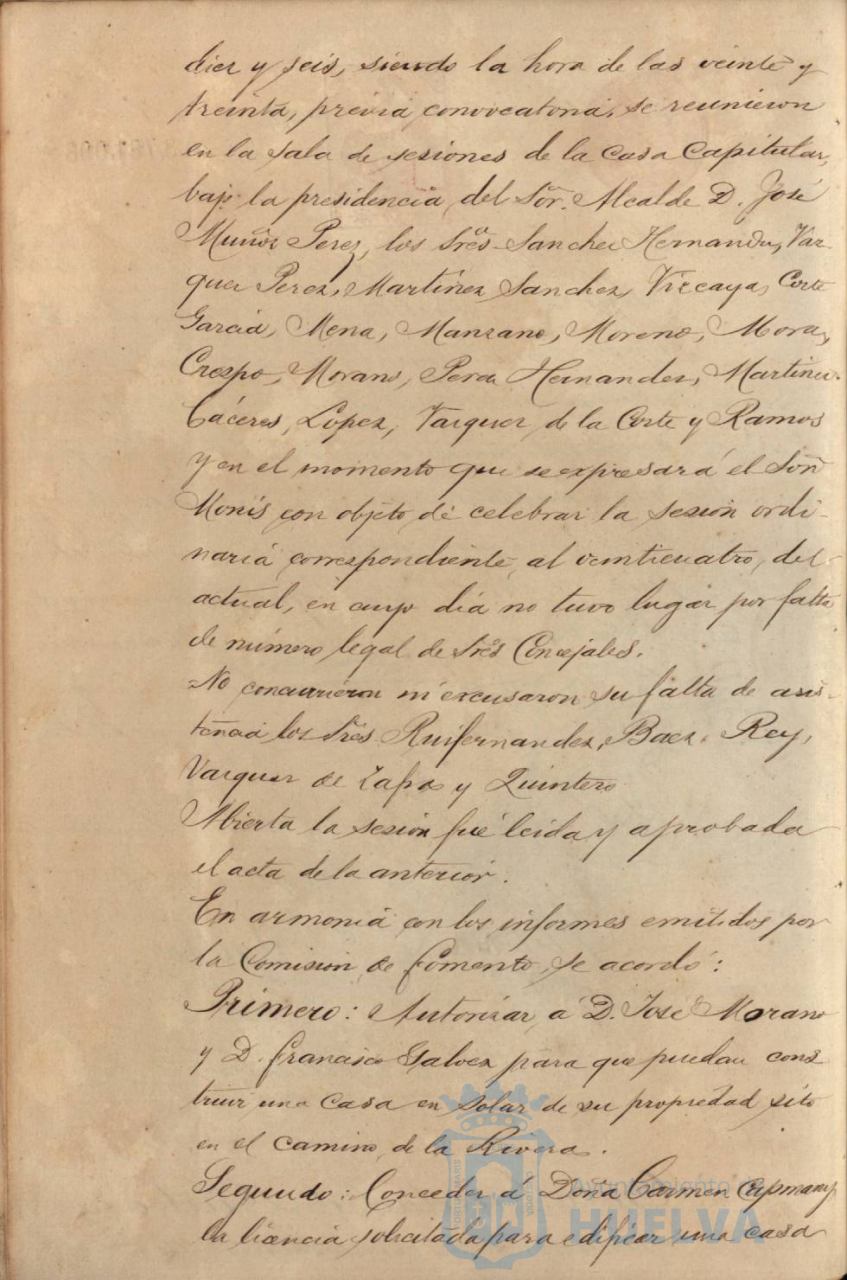 diez y seis, siendo la hora de las veinte y
treinta, previa convocatoria, se reunieron
en la sala de sesiones de la Casa Capitular,
bajo la presidencia del Sor. Alcalde D. José
Muñoz Perez, los Sres. Sanchez Hernandez, Vaz-
quez Perez, Martinez Sanchez, Vizcaya, Corte
Garcia, Mena, Manzano, Moreno, Mora,
Crespo, Morano, Perez Hernandez, Martinez
Cáceres, Lopez, Vazquez de la Corte y Ramos
y en el momento que se expresará el Señor
Monís con objeto de celebrar la sesión ordi-
naria correspondiente al veinticuatro, del
actual, en cuyo día no tuvo lugar por falta
de número legal de Sres Concejales.
No concurrieron ni excusaron su falta de asis-
tencia los Sres Ruifernandez, Baez, Rey,
Vazquez de Zafra y Quintero
Abierta la sesión fué leida y aprobada
el acta de la anterior.
En armonia con los informes emitidos por
la Comision de fomento, se acordó:
Primero: Autorizar á D. José Morano
y D. francisco Galvez para que puedan cons
truir una casa en solar de su propiedad sito
en el camino de la Rivera.
Segundo: Conceder á Doña Carmen Capmany
la licencia solicitada para edificar una casa
Ayuntamiento de
HUELVA